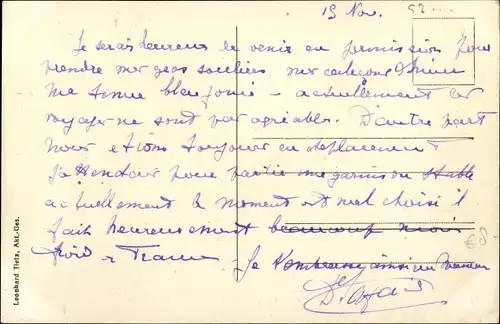 15 Nov.
Je serais heureux de venir en permission pour
prendre mes gros souliers mes caleçons
ma tenue bleu foncé - actuellement les
voyages ne sont pas agréables. D'autre part
nous étions toujours en déplacement
J'attendais pour partir
actuellement le moment est mal choisi il
fait heureusement beaucoup moins
froid
Je t'embrasse ainsi que Maman
Leonhard Tietz, Akt.-Ges.